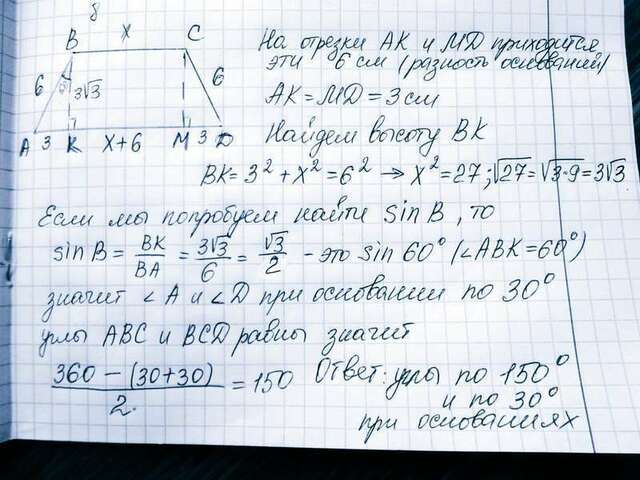 б
B x C
6 3√3 6
A 3 K x+6 M 3 D
На отрезки AK и MD приходится
эти 6 см (разность оснований)
AK = MD = 3 см
Найдем высоту BK
BK = 3² + x² = 6² → x² = 27; √27 = √3·9 = 3√3
Если мы попробуем найти sin B, то
sin B = BK/BA = 3√3/6 = √3/2 - это sin 60° (∠ABK = 60°)
значит ∠A и ∠D при основании по 30°
углы ABC и BCD равны значит
360 - (30+30)/2. = 150 Ответ: углы по 150°
и по 30°
при основаниях